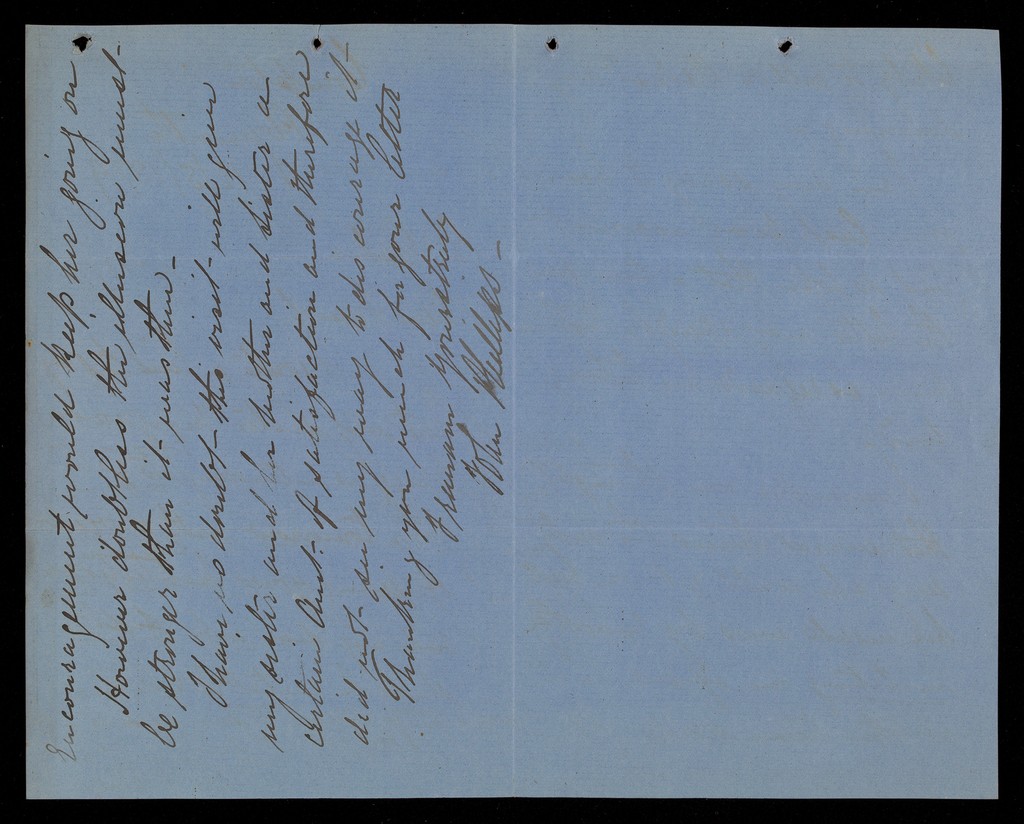 Encouragement would keep her going on
However doubtless the illusion must-
be stronger than it- was then -
I have no doubt- this visit- will give
my sister and her brother and sister a
certain amt- of satisfaction and therefore
did not- see my way to discourage it-
Thanking you much for your letter
I remain Yours truly
John Phillips -